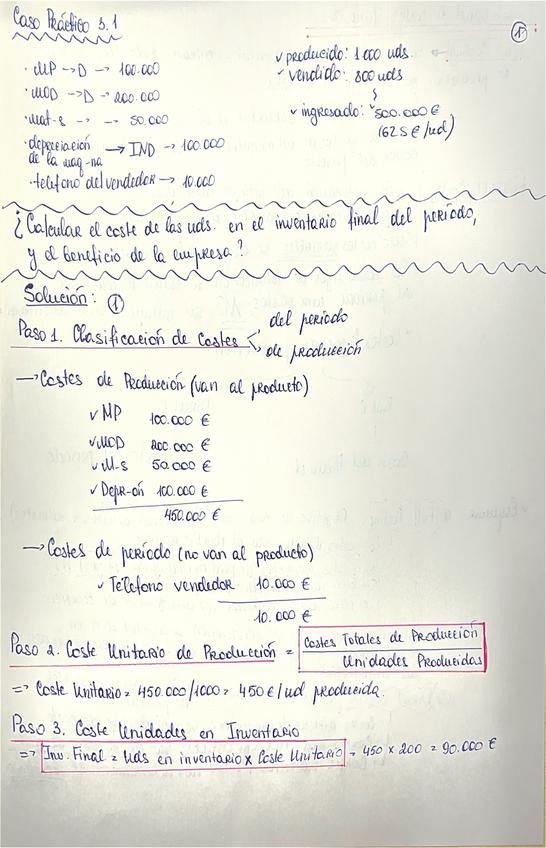 Caso Práctico 3.1
①
· MP → D → 100.000
· MOD → D → 200.000
· Mat-s → → 50.000
· depreciación de la maq-na → IND → 100.000
· teléfono del vendedor → 10.000
✓ producido: 1000 uds
✓ vendido: 800 uds
✓ ingresado: 500.000 €
(625 €/ud)
¿Calcular el coste de las uds. en el inventario final del período,
y el beneficio de la empresa?
Solución: ①
Paso 1. Clasificación de Costes
del período
de producción
→ Costes de Producción (van al producto)
✓ MP 100.000 €
✓ MOD 200.000 €
✓ M-s 50.000 €
✓ Depr-ón 100.000 €
450.000 €
→ Costes de período (no van al producto)
✓ Teléfono vendedor 10.000 €
10.000 €
Paso 2. Coste Unitario de Producción = Costes Totales de Producción
Unidades Producidas
=> Coste Unitario = 450.000/1000 = 450 €/ud producida.
Paso 3. Coste Unidades en Inventario
=> Inv. Final = Uds en inventario x Coste Unitario = 450 x 200 = 90.000 €